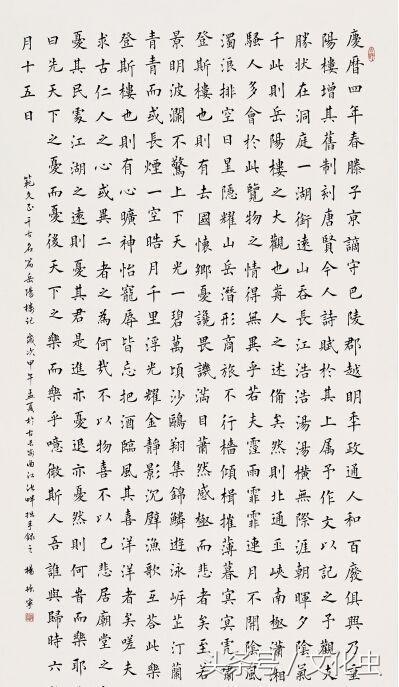 慶曆四年春滕子京謫守巴陵郡越明年政通人和百廢俱興乃重
陽樓增其舊制刻唐賢今人詩賦於其上屬予作文以記之予觀夫
勝狀在洞庭一湖銜遠山吞長江浩浩湯湯橫無際涯朝暉夕陰氣
千此則岳陽樓之大觀也前人之述備矣然則北通巫峽南極瀟湘
騷人多會於此覽物之情得無異乎若夫霪雨霏霏連月不開陰風
濁浪排空日星隱耀山岳潛形商旅不行檣傾楫摧薄暮冥冥虎嘯
登斯樓也則有去國懷鄉憂讒畏譏滿目蕭然感極而悲者矣至若
景明波瀾不驚上下天光一碧萬頃沙鷗翔集錦鱗遊泳岸芷汀蘭
青青而或長煙一空皓月千里浮光耀金靜影沉璧漁歌互答此樂
登斯樓也則有心曠神怡寵辱皆忘把酒臨風其喜洋洋者矣嗟夫
求古仁人之心或異二者之為何哉不以物喜不以己悲居廟堂之
憂其民處江湖之遠則憂其君是進亦憂退亦憂然則何時而樂耶
曰先天下之憂而憂後天下之樂而樂乎噫微斯人吾誰與歸時六
月十五日
範文正千古名篇岳陽樓記歲次甲午孟夏於古長安曲江池畔拙手錄之楊振寧
头条号 / 文化虫